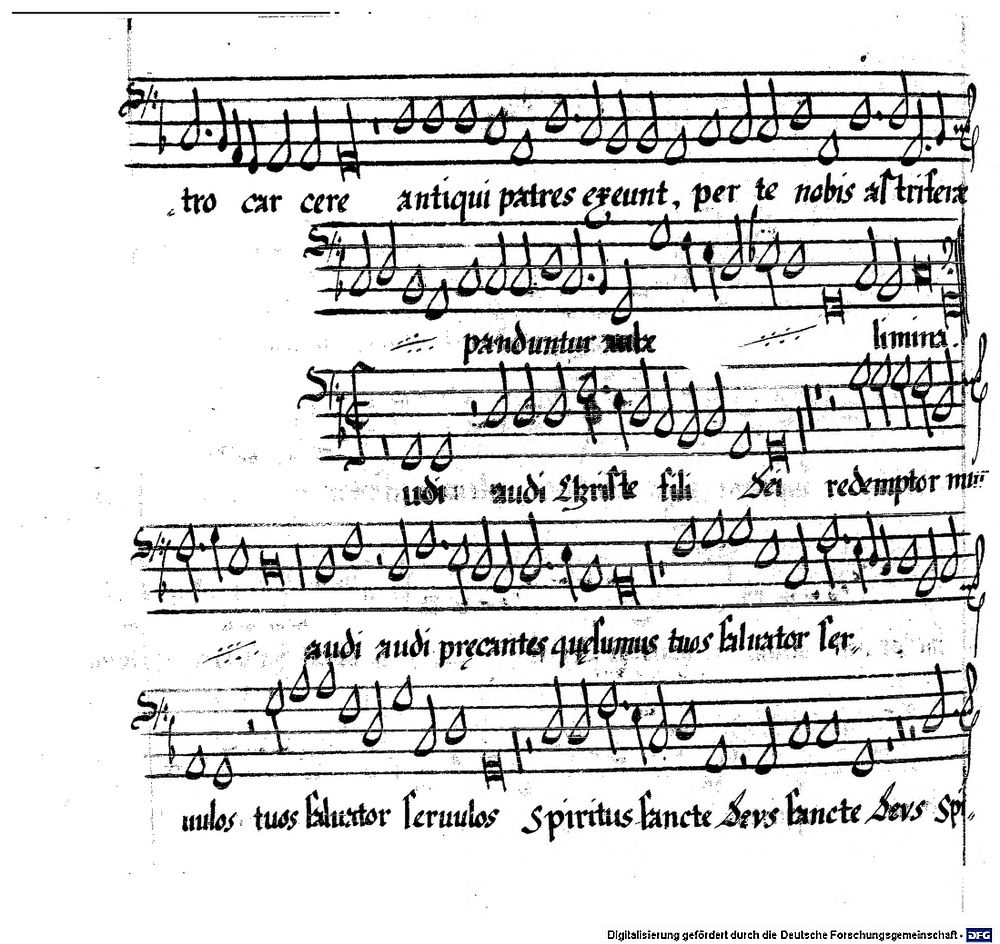 tro car cere antiqui patres exeunt, per te nobis astriferæ
panduntur aulæ limina.
udi audi Christe fili Dei redemptor mū
audi audi precantes quesumus tuos saluator ser,
uulos tuos saluator seruulos Spiritus sancte Deus sancte Deus Spi,,
Digitalisierung gefördert durch die Deutsche Forschungsgemeinschaft - DFG